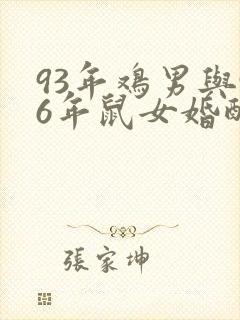 93年鸡男與
6年鼠女婚配
張家坤